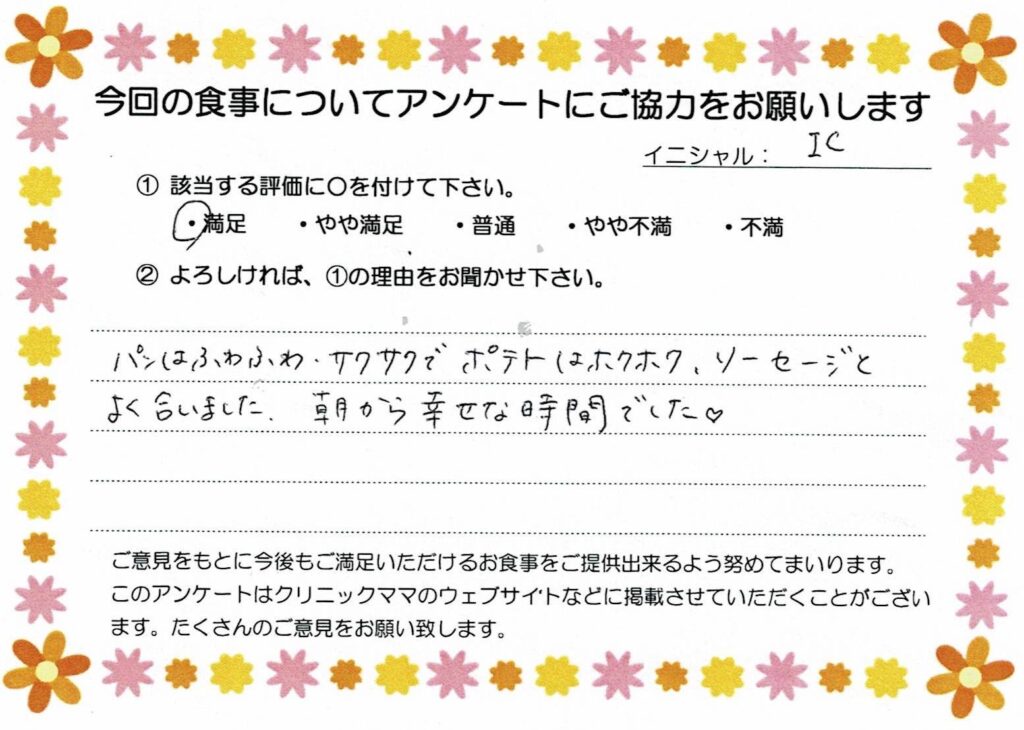 今回の食事についてアンケートにご協力をお願いします
イニシャル： IC
① 該当する評価に〇を付けて下さい。
・満足 ・やや満足 ・普通 ・やや不満 ・不満
② よろしければ、①の理由をお聞かせ下さい。
パンはふわふわ・サクサクで ポテトはホクホク、ソーセージと
よく合いました。 朝から幸せな時間でした♡
ご意見をもとに今後もご満足いただけるお食事をご提供出来るよう努めてまいります。
このアンケートはクリニックママのウェブサイトなどに掲載させていただくことがござい
ます。たくさんのご意見をお願い致します。